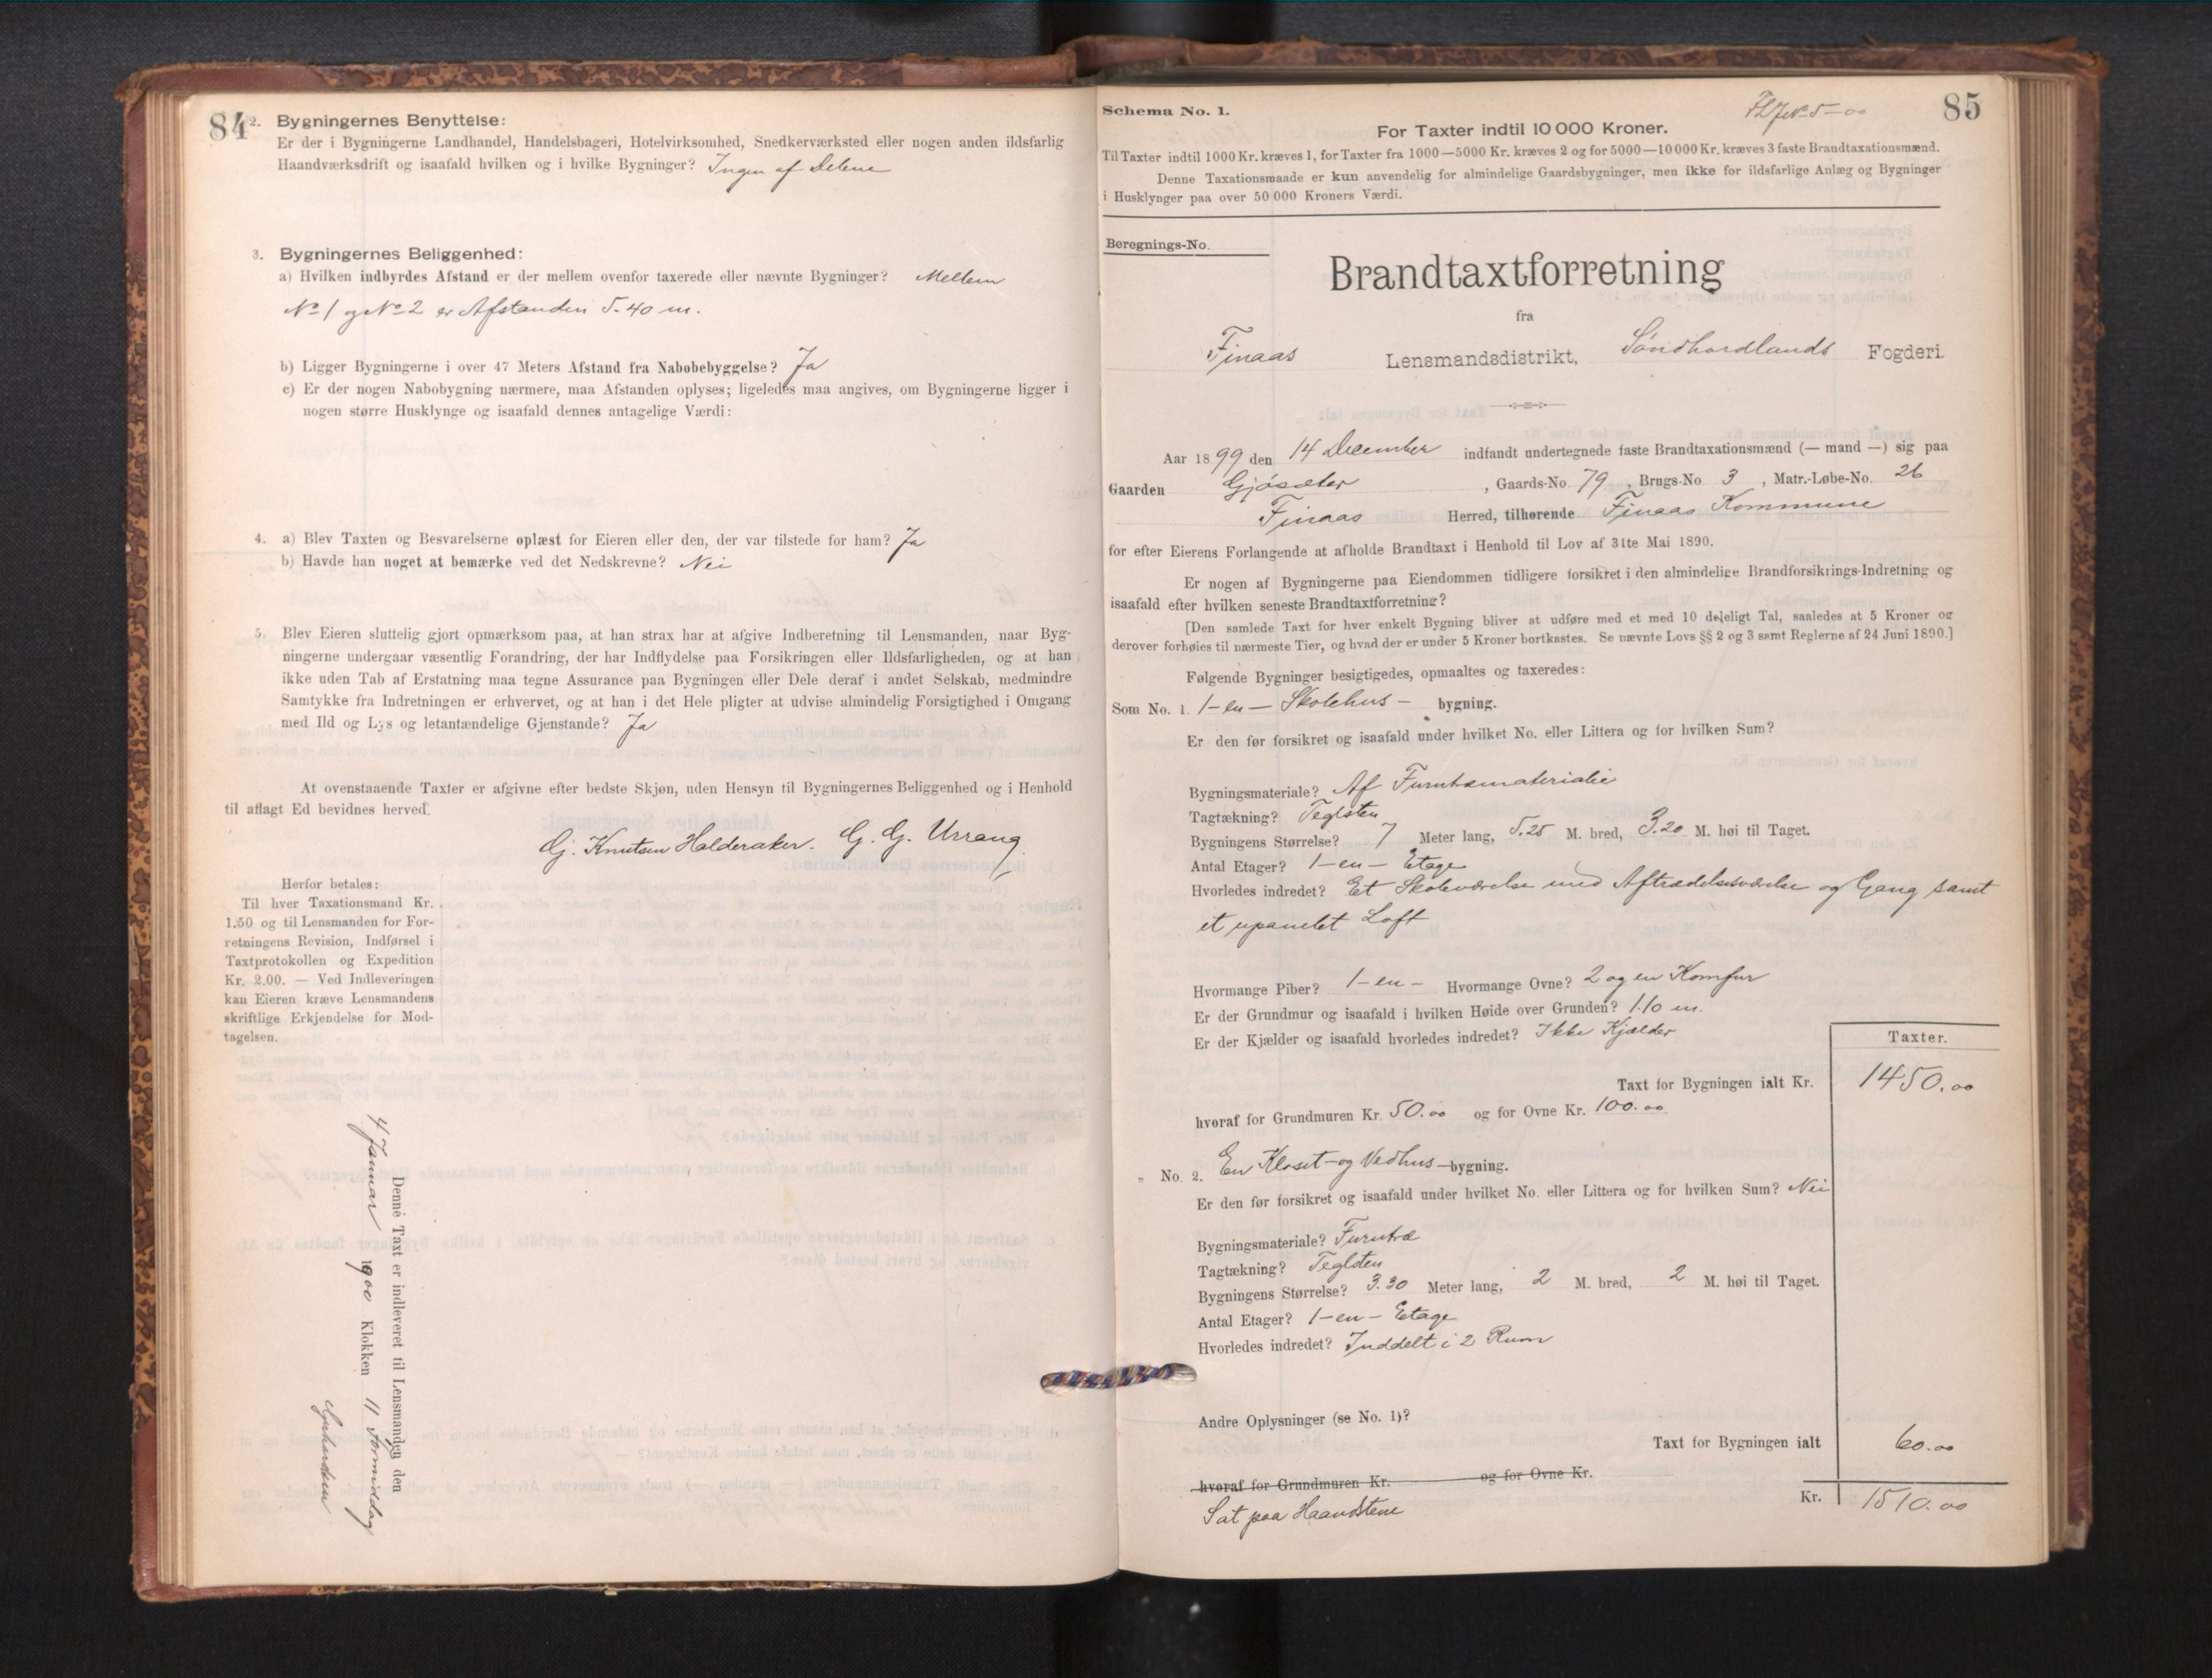 84
2. Bygningernes Benyttelse:
Er der i Bygningerne Landhandel, Handelsbageri, Hotelvirksomhed, Snedkerværksted eller nogen anden ildsfarlig
Haandværksdrift og isaafald hvilken og i hvilke Bygninger? Ingen af Delene
3. Bygningernes Beliggenhed:
a) Hvilken indbyrdes Afstand er der mellem ovenfor taxerede eller nævnte Bygninger? Mellem
No 1 og No 2 er Afstanden 5.40 m.
b) Ligger Bygningerne i over 47 Meters Afstand fra Nabobebyggelse? Ja
c) Er der nogen Nabobygning nærmere, maa Afstanden oplyses; ligeledes maa angives, om Bygningerne ligger i
nogen større Husklynge og isaafald dennes antagelige Værdi:
4. a) Blev Taxten og Besvarelserne oplæst for Eieren eller den, der var tilstede for ham? Ja
b) Havde han noget at bemærke ved det Nedskrevne? Nei
5. Blev Eieren sluttelig gjort opmærksom paa, at han strax har at afgive Indberetning til Lensmanden, naar Byg-
ningerne undergaar væsentlig Forandring, der har Indflydelse paa Forsikringen eller Ildsfarligheden, og at han
ikke uden Tab af Erstatning maa tegne Assurance paa Bygningen eller Dele deraf i andet Selskab, medmindre
Samtykke fra Indretningen er erhvervet, og at han i det Hele pligter at udvise almindelig Forsigtighed i Omgang
med Ild og Lys og letantændelige Gjenstande? Ja
At ovenstaaende Taxter er afgivne efter bedste Skjøn, uden Hensyn til Bygningernes Beliggenhed og i Henhold
til aflagt Ed bevidnes herved.
Gj. Knutsen Halderaker. G. G. Urrang
Herfor betales:
Til hver Taxationsmand Kr.
1.50 og til Lensmanden for For-
retningens Revision, Indførsel i
Taxtprotokollen og Expedition
Kr. 2.00. — Ved Indleveringen
kan Eieren kræve Lensmandens
skriftlige Erkjendelse for Mod-
tagelsen.
Denne Taxt er indleveret til Lensmanden den
4 Januar 1900 Klokken 11 Formiddag
Gerhardsen
85
Schema No. 1.
For Taxter indtil 10 000 Kroner.
Til Taxter indtil 1000 Kr. kræves 1, for Taxter fra 1000—5000 Kr. kræves 2 og for 5000—10 000 Kr. kræves 3 faste Brandtaxationsmænd.
Denne Taxationsmaade er kun anvendelig for almindelige Gaardsbygninger, men ikke for ildsfarlige Anlæg og Bygninger
i Husklynger paa over 50 000 Kroners Værdi.
Beregnings-No.
Brandtaxtforretning
fra
Finaas Lensmandsdistrikt, Søndhordlands Fogderi.
Aar 1899 den 14 December indfandt undertegnede faste Brandtaxationsmænd (— mand —) sig paa
Gaarden Gjøsæter, Gaards-No. 79, Brugs-No. 3, Matr.-Løbe-No. 26
Finaas Herred, tilhørende Finaas Kommune
for efter Eierens Forlangende at afholde Brandtaxt i Henhold til Lov af 31te Mai 1890.
Er nogen af Bygningerne paa Eiendommen tidligere forsikret i den almindelige Brandforsikrings-Indretning og
isaafald efter hvilken seneste Brandtaxtforretning?
[Den samlede Taxt for hver enkelt Bygning bliver at udføre med et med 10 deleligt Tal, saaledes at 5 Kroner og
derover forhøies til nærmeste Tier, og hvad der er under 5 Kroner bortkastes. Se nævnte Lovs §§ 2 og 3 samt Reglerne af 24 Juni 1890.]
Følgende Bygninger besigtigedes, opmaaltes og taxeredes:
Som No. 1. 1-en- Skolehus- bygning.
Er den før forsikret og isaafald under hvilket No. eller Littera og for hvilken Sum?
Bygningsmateriale? Af Furutræmaterialie
Tagtækning? Teglsten
Bygningens Størrelse? 7 Meter lang, 5.25 M. bred, 3.20 M. høi til Taget.
Antal Etager? 1-en- Etage
Hvorledes indredet? Et Skoleværelse med Aftrædelsesværelse og Gang samt
et upanelet Loft
Hvormange Piber? 1-en- Hvormange Ovne? 2 og en Komfur
Er der Grundmur og isaafald i hvilken Høide over Grunden? 1.10 m.
Er der Kjælder og isaafald hvorledes indredet? Ikke Kjælder
Taxter.
Taxt for Bygningen ialt Kr. 1450.00
hvoraf for Grundmuren Kr. 50.00 og for Ovne Kr. 100.00
„ No. 2. En Kloset- og Vedhus -bygning.
Er den før forsikret og isaafald under hvilket No. eller Littera og for hvilken Sum? Nei
Bygningsmateriale? Furutræ
Tagtækning? Teglsten
Bygningens Størrelse? 3.30 Meter lang, 2 M. bred, 2 M. høi til Taget.
Antal Etager? 1-en- Etage
Hvorledes indredet? Inddelt i 2 Rum
Andre Oplysninger (se No. 1)?
Taxt for Bygningen ialt 60.00
hvoraf for Grundmuren Kr. og for Ovne Kr.
Sat paa Haandstene
Kr. 1510.00